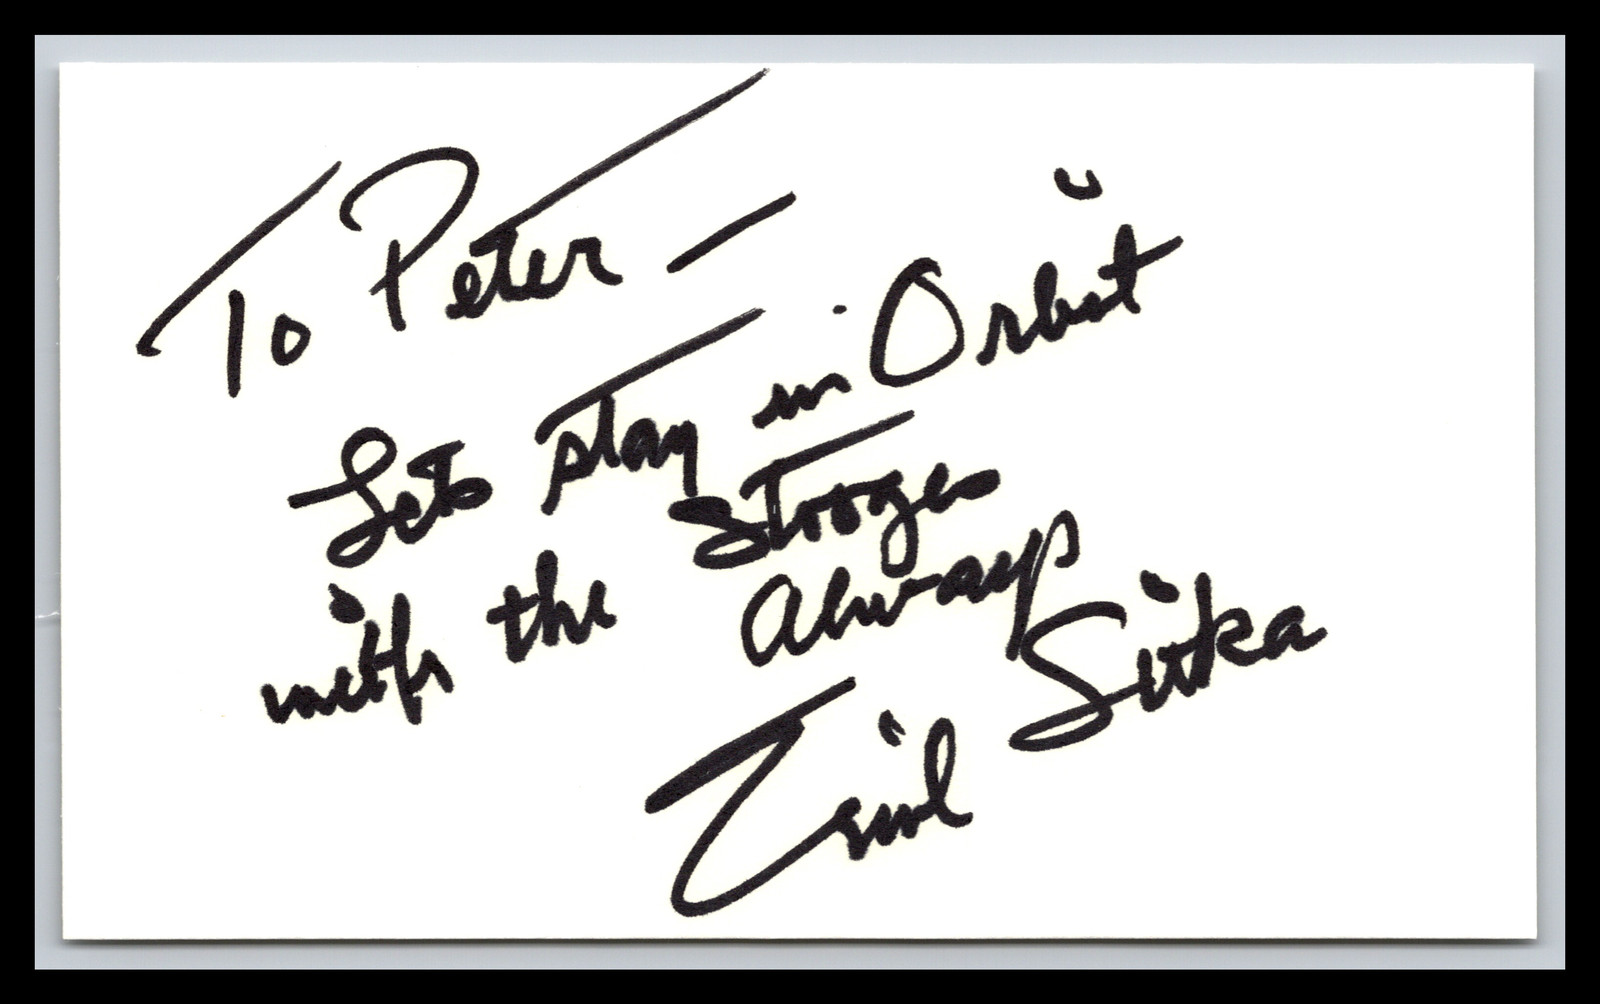 To Peter —
Lets stay in Orbit
with the Stooges
Always
Emil Sitka